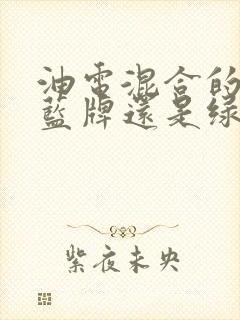 油電混合的
藍牌還是綠
紫夜未央